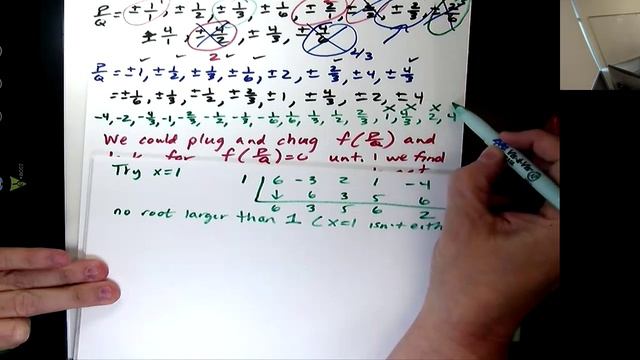 P/Q = ± 1/1, ± 1/2, ± 1/3, ± 1/6, ± 2/1, ± 2/2, ± 2/3, ± 2/6
± 4/1, ± 4/2, ± 4/3, ± 4/6
2 2/3
P/Q = ±1, ± 1/2, ± 1/3, ± 1/6, ± 2, ± 2/3, ± 4, ± 4/3
= ± 1/6, ± 1/3, ± 1/2, ± 2/3, ± 1, ± 4/3, ± 2, ± 4
-4, -2, -4/3, -1, -2/3, -1/2, -1/3, -1/6, 1/6, 1/3, 1/2, 2/3, 1, 4/3, 2, 4
We could plug and chug f(P/Q) and
for f(P/Q)=0 until we find
Try x=1
1 | 6 -3 2 1 -4
↓ 6 3 5 6
6 3 5 6 2
no root larger than 1 (x=1 isn't eith